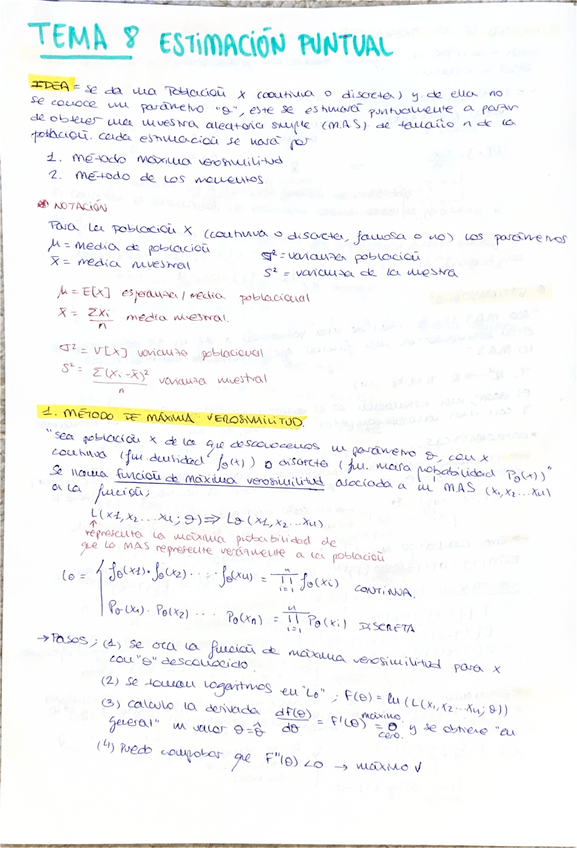 TEMA 8 ESTIMACIÓN PUNTUAL
IDEA = se da una Población X (continua o discreta) y de ella no
se conoce un parámetro "θ", este se estimará puntualmente a partir
de obtener una muestra aleatoria simple (MAS) de tamaño n de la
población. Cada estimación se hará por
1. Método máxima verosimilitud
2. Método de los momentos
NOTACIÓN
Para la población X (continua o discreta, famosa o no) los parámetros
μ = media de población σ² = varianza población
x̄ = media muestral S² = varianza de la muestra
μ = E[X] esperanza/media poblacional
x̄ = Σxi/n media muestral.
σ² = V[X] varianza poblacional
S² = Σ(xi-x̄)²/n varianza muestral
1. MÉTODO DE MÁXIMA VEROSIMILITUD.
"Sea población X de la que desconocemos un parámetro θ, con X
continua (fun densidad fθ(x)) o discreta (fun. masa probabilidad Pθ(x))"
Se llama función de máxima verosimilitud asociada a un MAS (x1, x2 ... xn)
a la función;
L(x1, x2 ... xn; θ) ⇒ Lθ(x1, x2 ... xn)
representa la máxima probabilidad de
que la MAS represente verazmente a la población
Lθ = { fθ(x1) · fθ(x2) · ... · fθ(xn) = ∏ⁿᵢ₌₁ fθ(xi) CONTINUA.
Pθ(x1) · Pθ(x2) ... Pθ(xn) = ∏ⁿᵢ₌₁ Pθ(xi) DISCRETA
→ Pasos; (1) Se crea la función de máxima verosimilitud para X
con "θ" desconocido.
(2) Se toman logaritmos en "Lθ"; F(θ) = ln (L(x1, x2 ... xn; θ))
(3) calculo la derivada dF(θ)/dθ = F'(θ) = 0 y se obtiene "en
máximo cero
general" un valor θ = θ̂
(4) Puedo comprobar que F''(θ) < 0 → máximo ✓